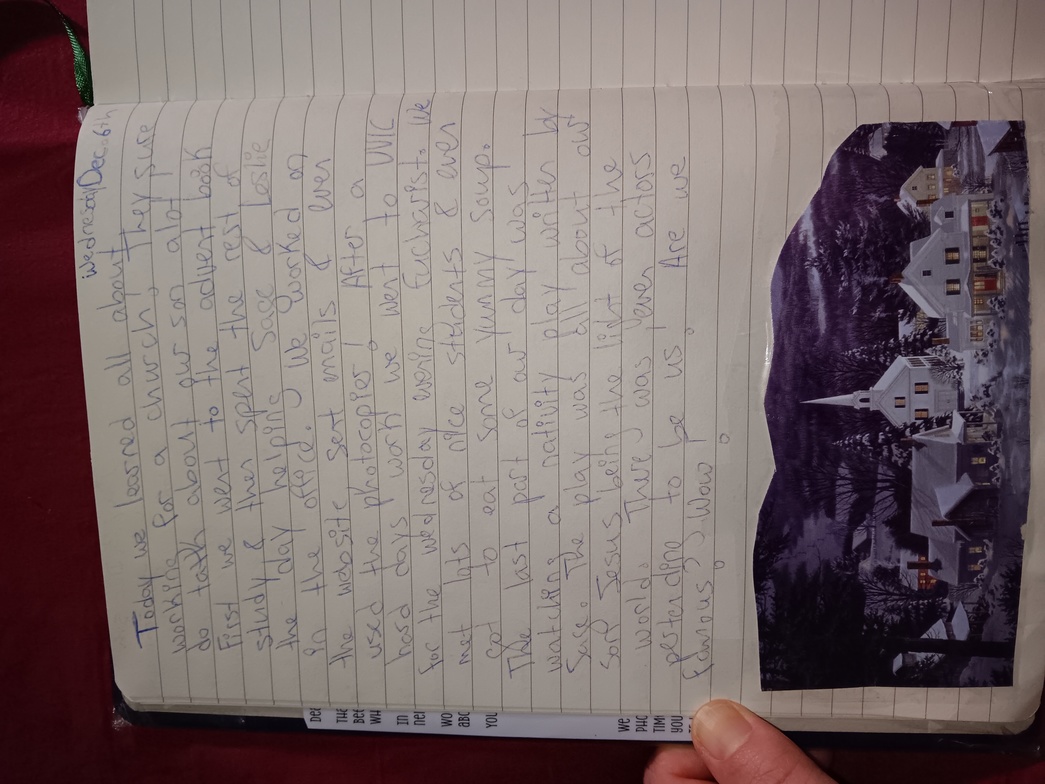 Wednesday Dec. 6th
Today we learned all about
working for a church, They sure
do talk about our son alot
First we went to the advent book
study & then spent the rest of
the day helping Sage & Leslie
in the office. We worked on
the website sent emails & even
used the photocopier! After a
hard days work we went to UVIC
for the wednesday evening Eucharist. We
met lots of nice students & even
got to eat some yummy soup.
The last part of our day was
watching a nativity play written by
Sage. The play was all about our
son Jesus being the light of the
world. There was even actors
pretending to be us! Are we
famous?? Wow
DE
THE
BEE
WH
IN
nei
WO
ABO
YOU
WE
PHO
TIM
YOU